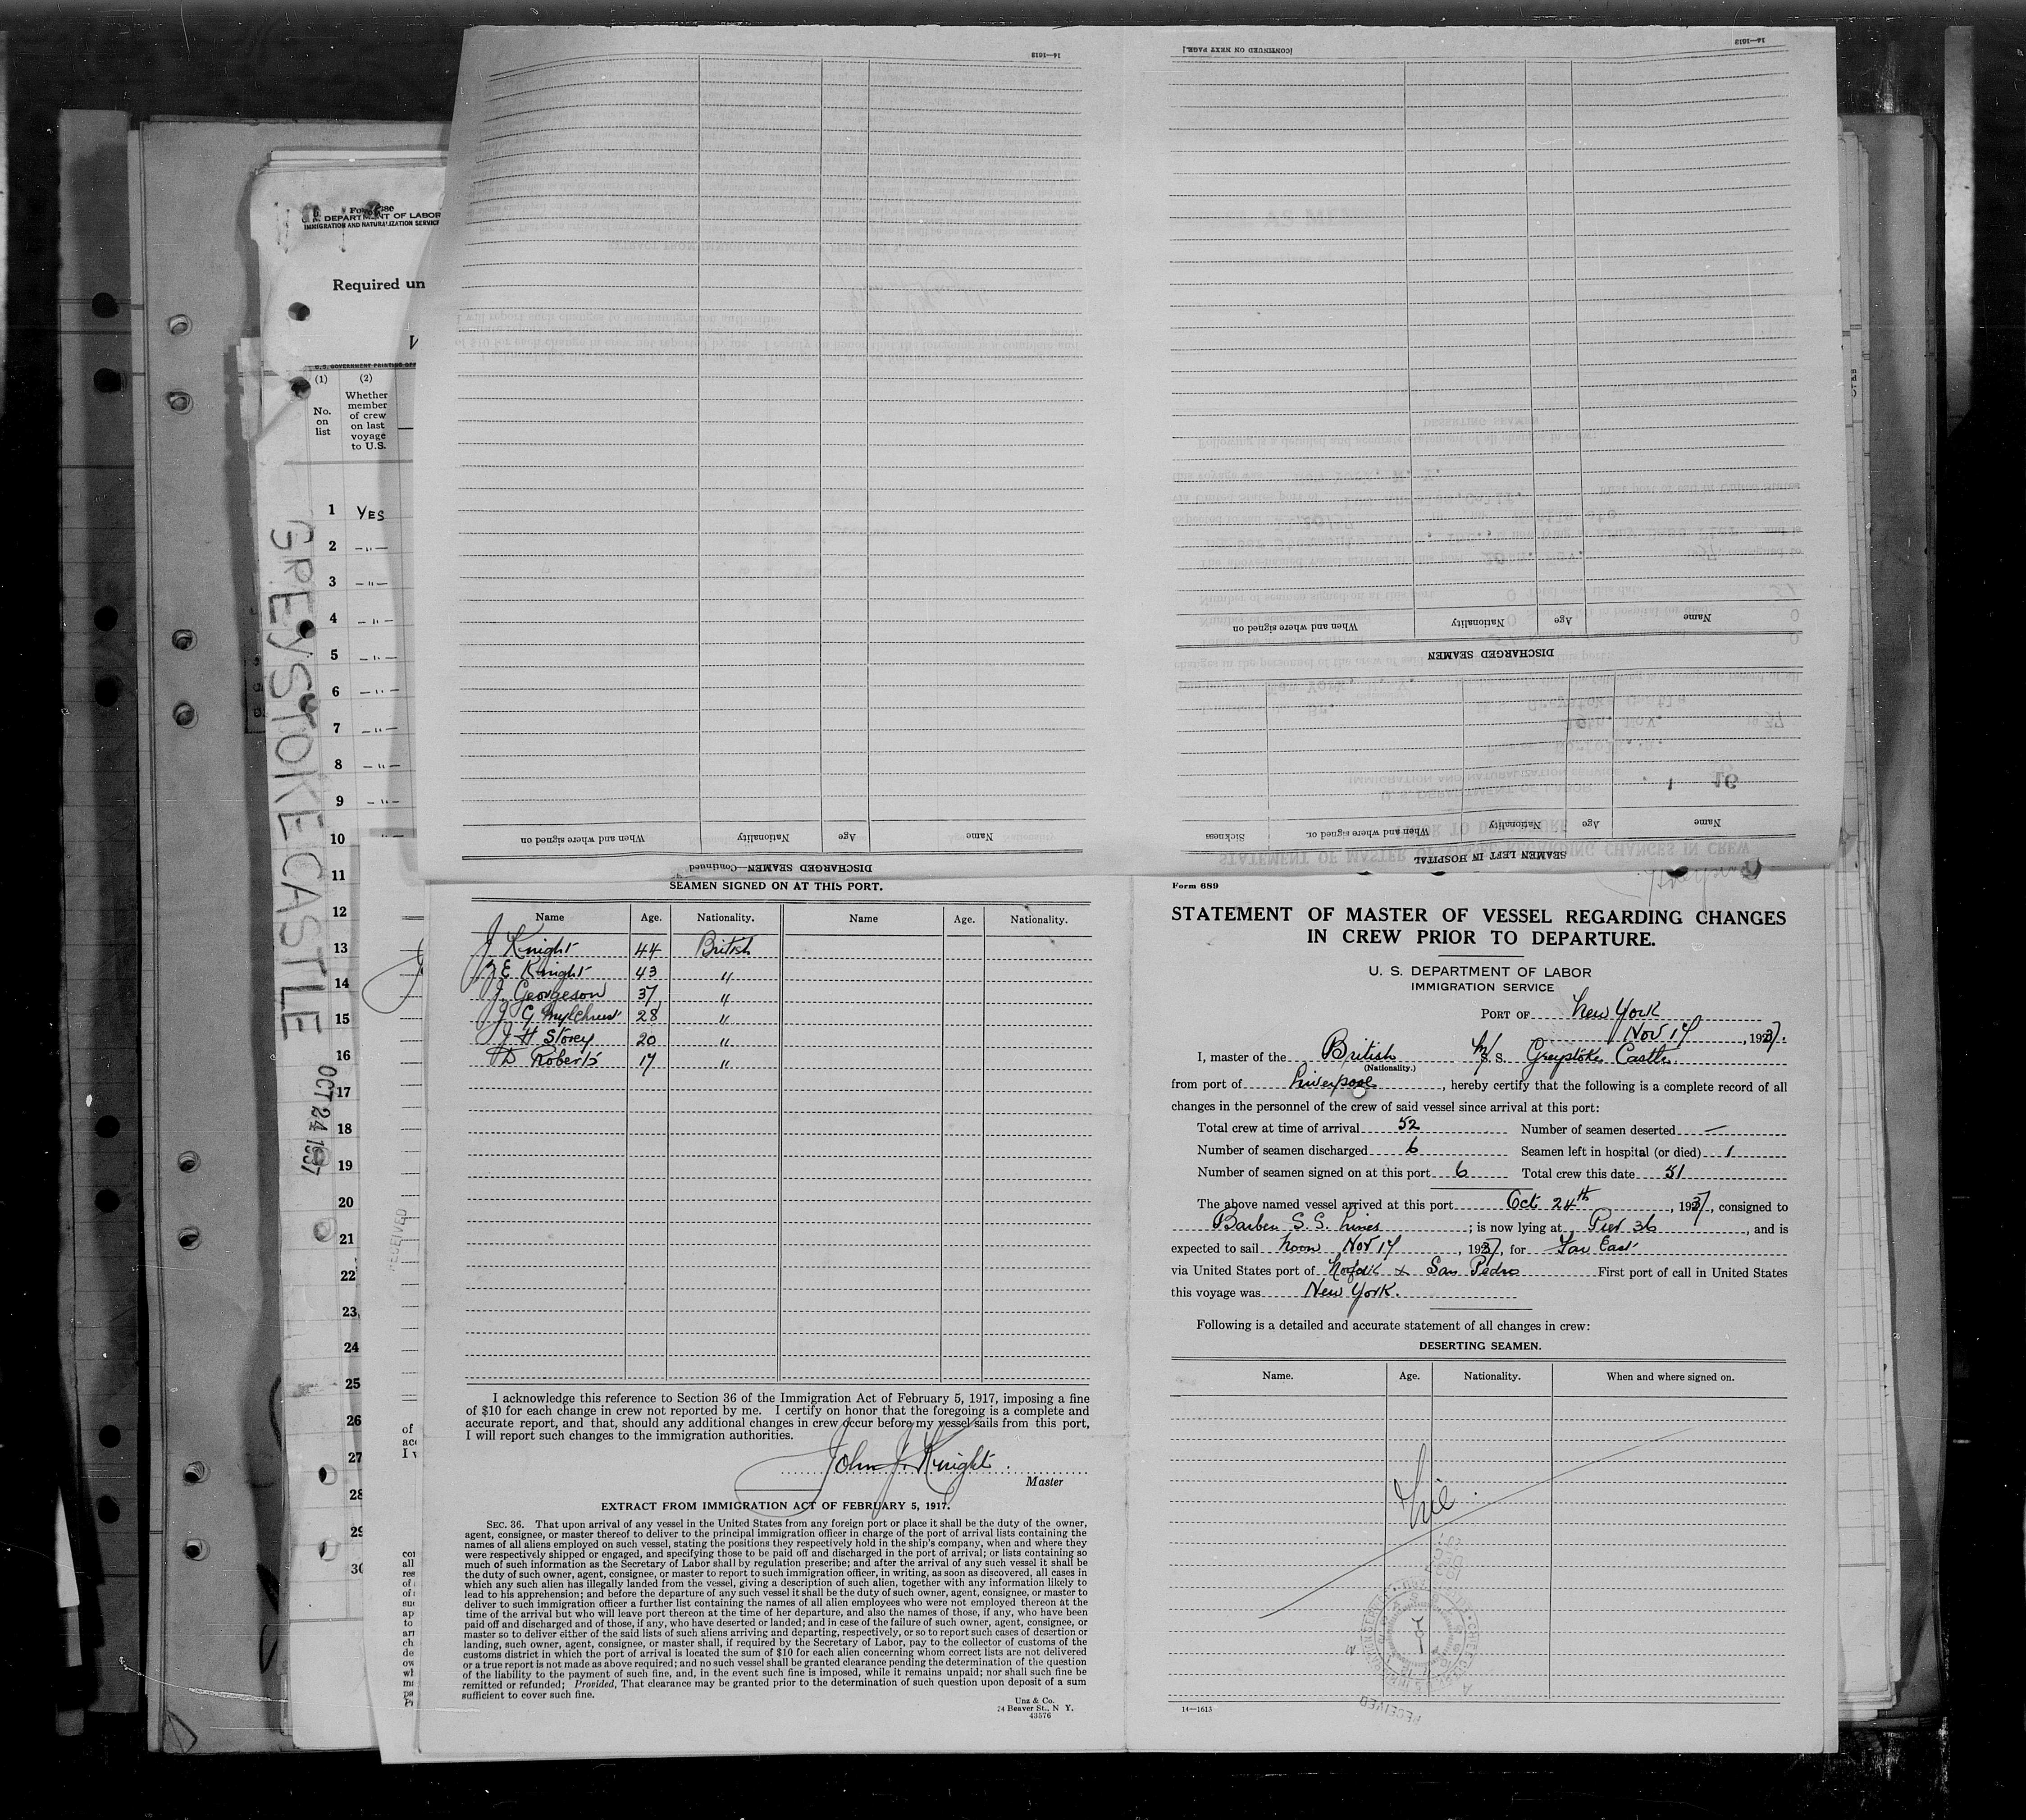 14—1613
[CONTINUED ON NEXT PAGE.]
14—1613
Form 680
U. S. DEPARTMENT OF LABOR
IMMIGRATION AND NATURALIZATION SERVICE
Required un
U. S. GOVERNMENT PRINTING OFF
(1) (2)
No. on list
Whether member of crew on last voyage to U.S.
1 YES
2 —"—
3 —"—
4 —"—
5 —"—
6 —"—
7 —"—
8 —"—
9 —"—
10
11
12
13
14
15
16
17
18
19
20
21
22
23
24
25
26
27
28
29
30
GREYSTOKE CASTLE
OCT 24 1937
RECEIVED
Name Age Nationality When and where signed on
DISCHARGED SEAMEN
Name Age Nationality When and where signed or. Sickness
SEAMEN LEFT IN HOSPITAL
Name Age Nationality When and where signed on
DISCHARGED SEAMEN—Continued
SEAMEN SIGNED ON AT THIS PORT.
Name Age. Nationality. Name Age. Nationality.
J Knight 44 British
E Knight 43 "
J. Georgeson 37 "
J G 28 "
J H Storey 20 "
D Roberts 17 "
I acknowledge this reference to Section 36 of the Immigration Act of February 5, 1917, imposing a fine
of $10 for each change in crew not reported by me. I certify on honor that the foregoing is a complete and
accurate report, and that, should any additional changes in crew occur before my vessel sails from this port,
I will report such changes to the immigration authorities.
John J. Knight.
Master
EXTRACT FROM IMMIGRATION ACT OF FEBRUARY 5, 1917.
SEC. 36. That upon arrival of any vessel in the United States from any foreign port or place it shall be the duty of the owner,
agent, consignee, or master thereof to deliver to the principal immigration officer in charge of the port of arrival lists containing the
names of all aliens employed on such vessel, stating the positions they respectively hold in the ship's company, when and where they
were respectively shipped or engaged, and specifying those to be paid off and discharged in the port of arrival; or lists containing so
much of such information as the Secretary of Labor shall by regulation prescribe; and after the arrival of any such vessel it shall be
the duty of such owner, agent, consignee, or master to report to such immigration officer, in writing, as soon as discovered, all cases in
which any such alien has illegally landed from the vessel, giving a description of such alien, together with any information likely to
lead to his apprehension; and before the departure of any such vessel it shall be the duty of such owner, agent, consignee, or master to
deliver to such immigration officer a further list containing the names of all alien employees who were not employed thereon at the
time of the arrival but who will leave port thereon at the time of her departure, and also the names of those, if any, who have been
paid off and discharged and of those, if any, who have deserted or landed; and in case of the failure of such owner, agent, consignee, or
master so to deliver either of the said lists of such aliens arriving and departing, respectively, or so to report such cases of desertion or
landing, such owner, agent, consignee, or master shall, if required by the Secretary of Labor, pay to the collector of customs of the
customs district in which the port of arrival is located the sum of $10 for each alien concerning whom correct lists are not delivered
or a true report is not made as above required; and no such vessel shall be granted clearance pending the determination of the question
of the liability to the payment of such fine, and, in the event such fine is imposed, while it remains unpaid; nor shall such fine be
remitted or refunded; Provided, That clearance may be granted prior to the determination of such question upon deposit of a sum
sufficient to cover such fine.
Unz & Co.
24 Beaver St., N. Y.
43576
Form 689
STATEMENT OF MASTER OF VESSEL REGARDING CHANGES
IN CREW PRIOR TO DEPARTURE.
U. S. DEPARTMENT OF LABOR
IMMIGRATION SERVICE
PORT OF New York
Nov 17, 1937.
I, master of the British M/S. S. Greystoke Castle.
(Nationality.)
from port of Liverpool, hereby certify that the following is a complete record of all
changes in the personnel of the crew of said vessel since arrival at this port:
Total crew at time of arrival 52 Number of seamen deserted —
Number of seamen discharged 6 Seamen left in hospital (or died) 1
Number of seamen signed on at this port 6 Total crew this date 51
The above named vessel arrived at this port Oct 24th, 1937, consigned to
Barber S. S. Lines; is now lying at Pier 36, and is
expected to sail Noon Nov 17, 1937, for Far East
via United States port of Norfolk + San Pedro First port of call in United States
this voyage was New York.
Following is a detailed and accurate statement of all changes in crew:
DESERTING SEAMEN.
Name. Age. Nationality. When and where signed on.
Nil
RECEIVED
14—1613